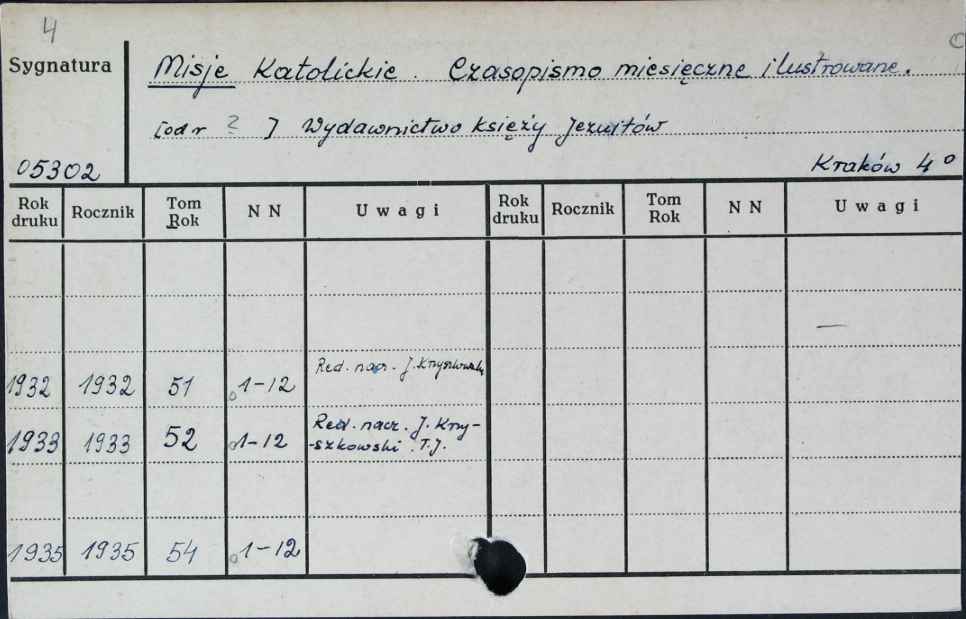 4
Sygnatura
Misje Katolickie. Czasopismo miesięczne ilustrowane.
[od r ? ] Wydawnictwo księży Jezuitów
05302
Kraków 4°
Rok druku Rocznik Tom Rok N N Uwagi Rok druku Rocznik Tom Rok N N Uwagi
1932 1932 51 1-12 Red. nacz. J. Krzyszkowski
1933 1933 52 1-12 Red. nacz. J. Krzy-
-szkowski T.J.
1935 1935 54 1-12